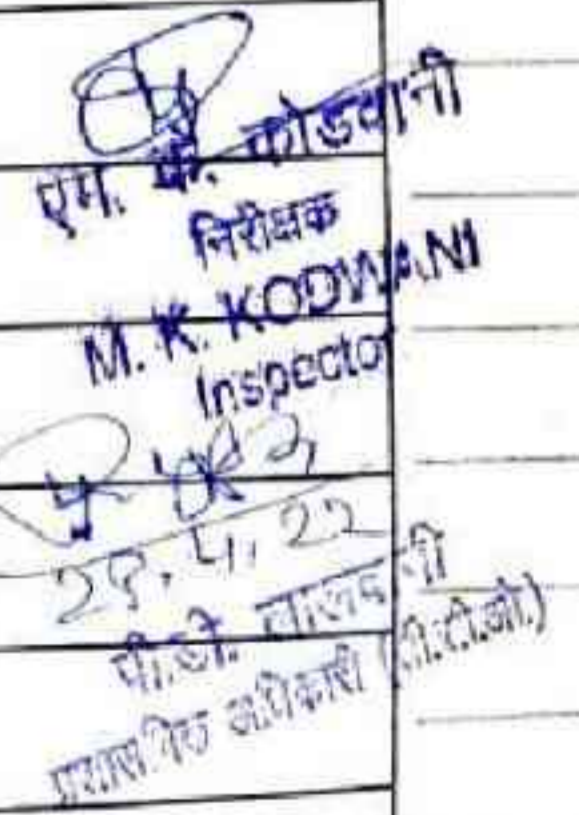 एम. के. कोडवानी
निरीक्षक
M. K. KODWANI
Inspector
28.4.22
पी.डी.
प्रशासनिक अधिकारी